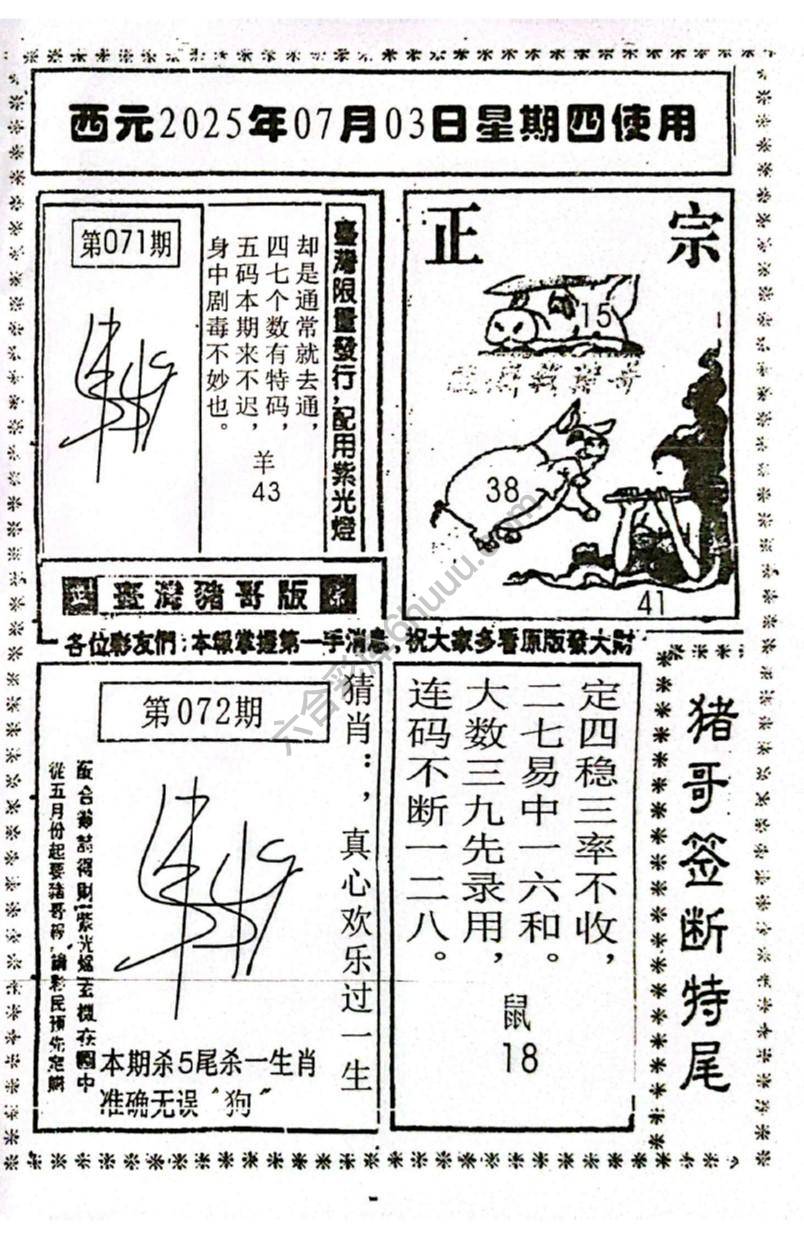 西元2025年07月03日星期四使用
第071期
却是通常就去通，
四七个数有特码，
五码本期来不迟，
身中剧毒不妙也。
羊
43
臺灣限量發行，配用紫光燈
正宗
15
38
41
臺灣豬哥版
各位彩友們：本報掌握第一手消息，祝大家多看原版發大財
第072期
猜肖：，真心欢乐过一生
從五月份起要豬哥報，請彩民預先定購
本期杀5尾杀一生肖
准确无误“狗”
定四稳三率不收，
二七易中一六和。
大数三九先录用，
连码不断一二八。
鼠
18
猪哥签断特尾
六合彩库6huuu.com